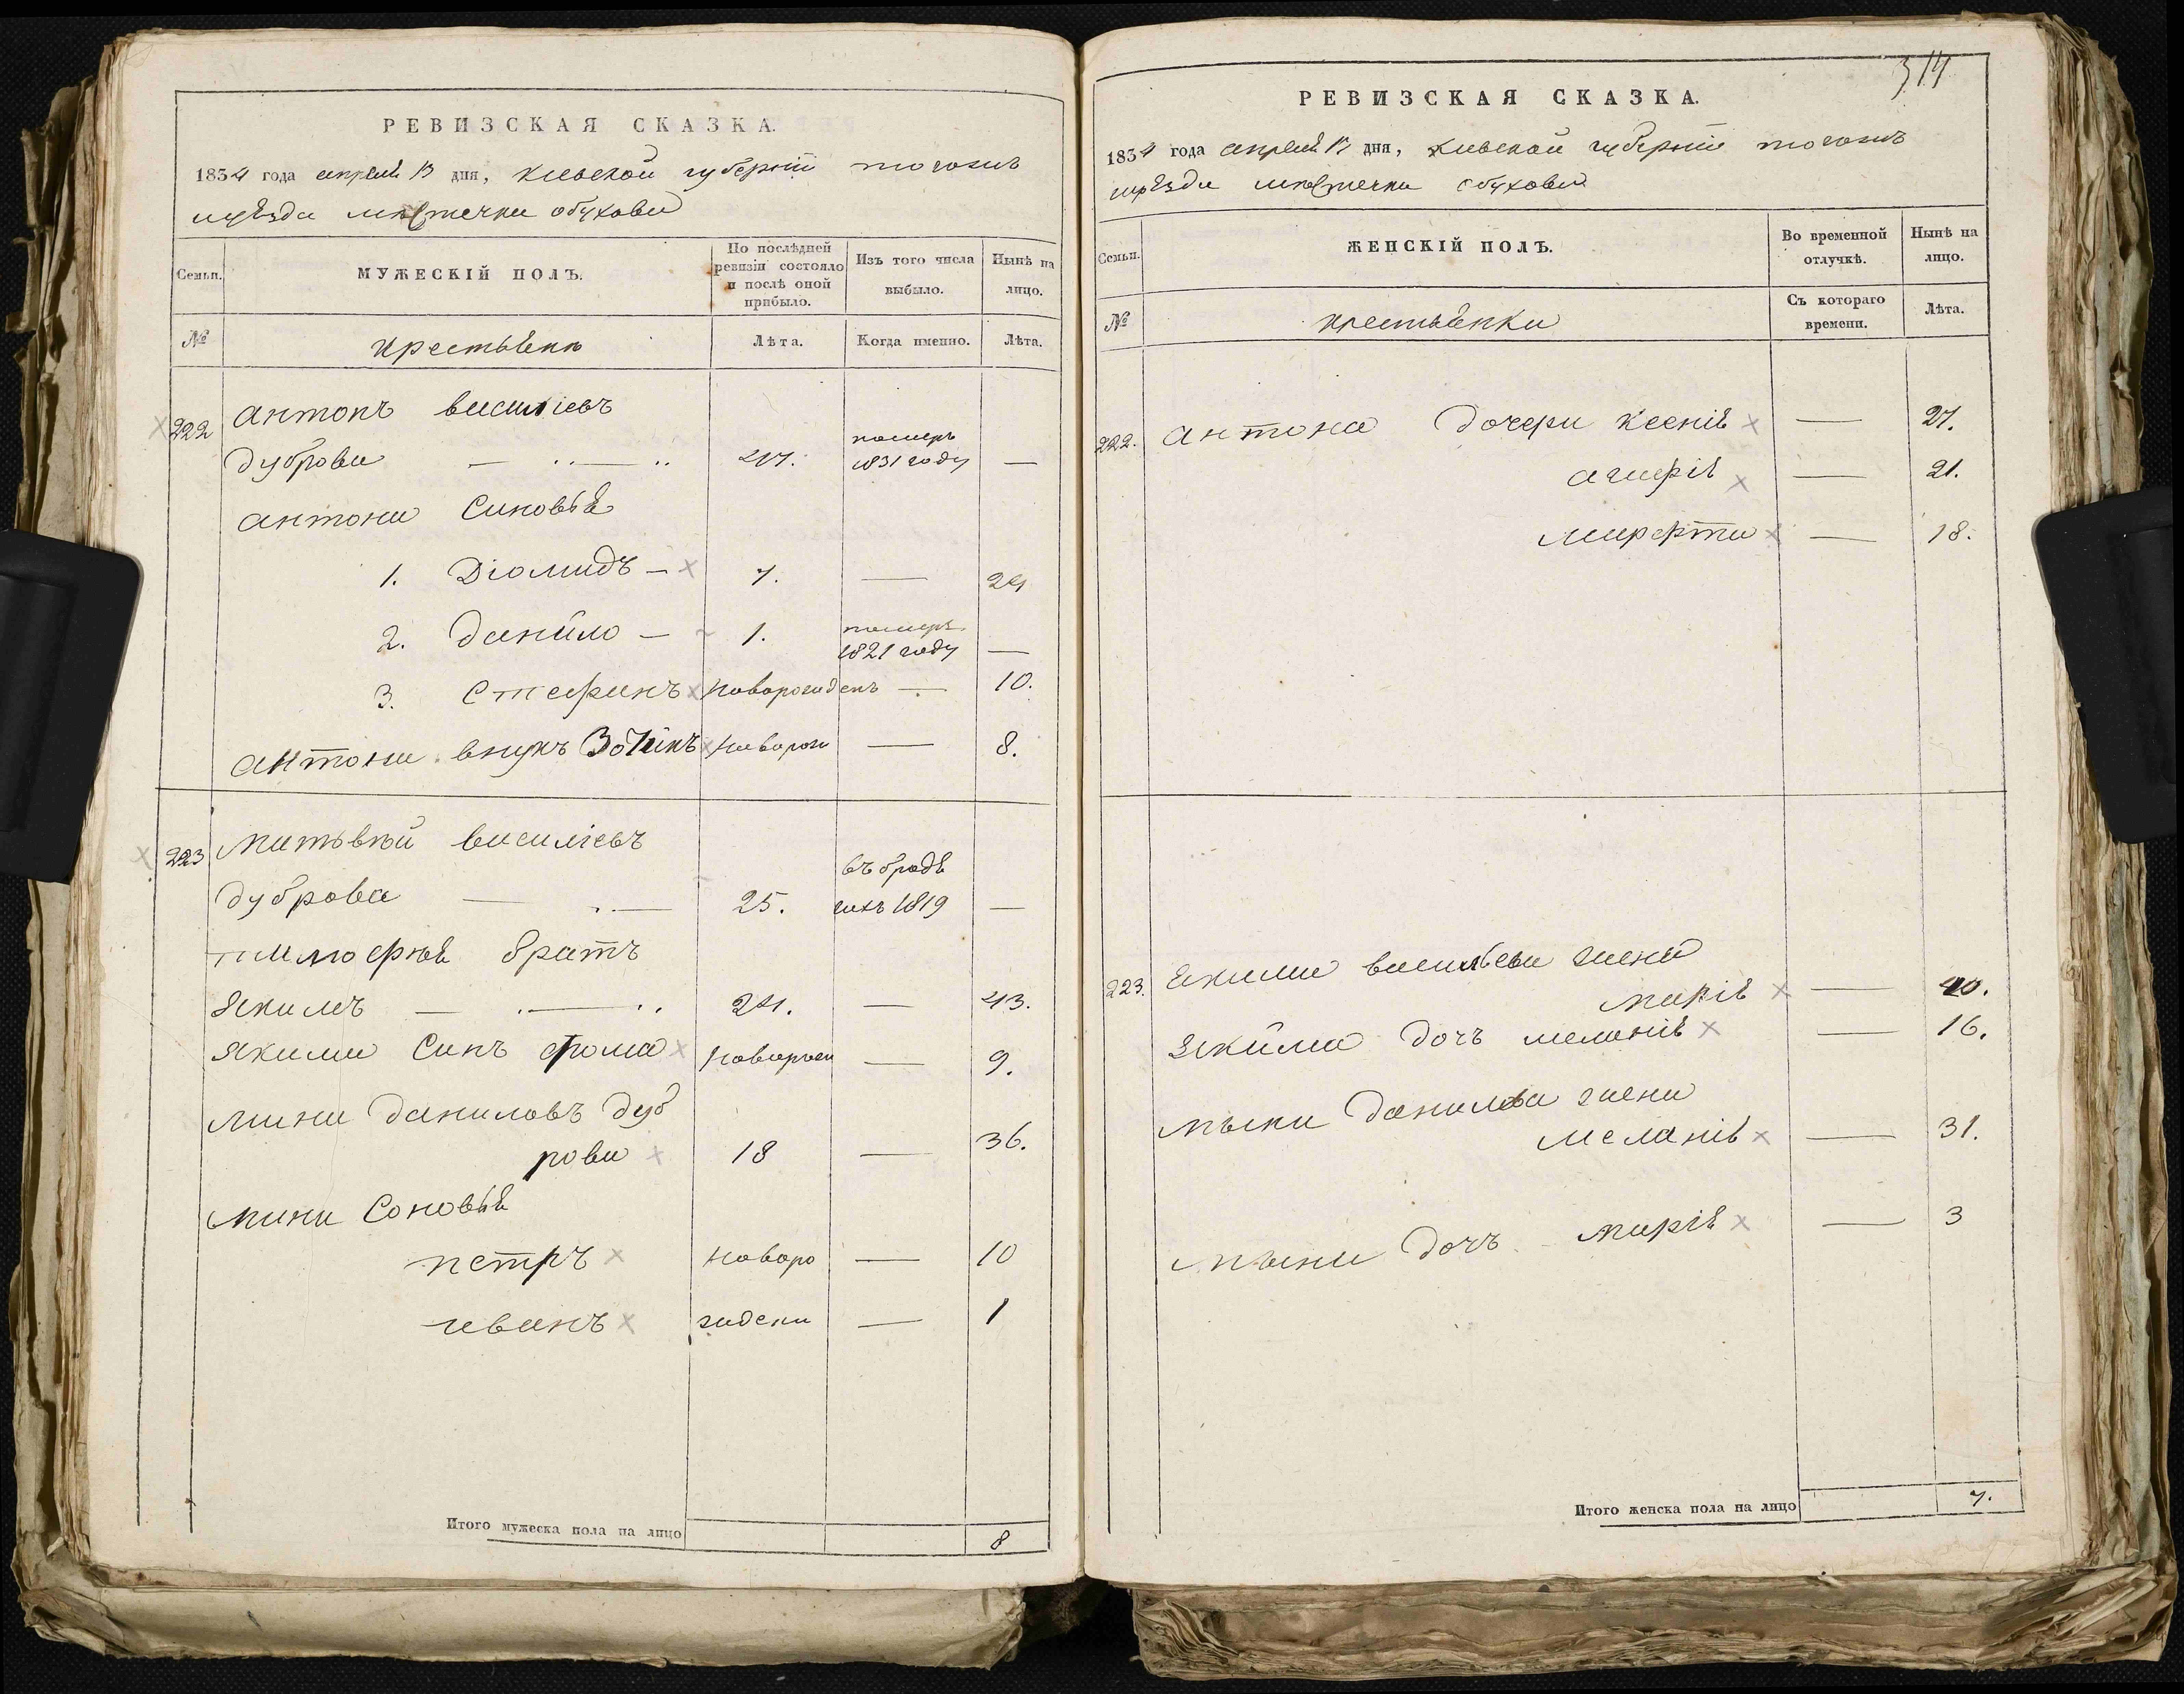 РЕВИЗСКАЯ СКАЗКА.
1834 года апреля 13 дня, киевской губернiи тогожъ
уѣзда местечка обухова
Семьи.
МУЖЕСКІЙ ПОЛЪ.
По послѣдней ревизіи состояло и послѣ оной прибыло.
Изъ того числа выбыло.
Нынѣ на лицо.
№
крестьяне
Лѣта.
Когда именно.
Лѣта.
222 антонъ василіевъ
дуброва 47. померъ 1831 году —
антона синовья
1. Діомидъ — 7. — 24
2. данило — 1. померъ 1821 году —
3. стефанъ новорожденъ — 10.
антона внукъ новорож — 8.
223 матьвѣй василіевъ
дуброва — 25. въ бродягахъ 1819 —
тимофѣя братъ
якимъ — 24. — 43.
якима синъ фома новорож — 9.
мина даниловъ дуб
рова 18 — 36.
мини соновья
петръ новоро — 10
иванъ ждени — 1
Итого мужеска пола на лицо 8
314
РЕВИЗСКАЯ СКАЗКА.
1834 года апреля 13 дня, киевской губернiи тогожъ
уѣзда местечка обухова
Семьи.
ЖЕНСКІЙ ПОЛЪ.
Во временной отлучкѣ.
Нынѣ на лицо.
№
крестьянки
Съ котораго времени.
Лѣта.
222. антона дочери ксенія — 27.
агафія — 21.
марфта — 18.
223. якима васильева жена
марія — 40.
якима дочъ меланія — 16.
мыни данилова жена
меланія — 31.
мыни дочъ марія — 3
Итого женска пола на лицо 7.